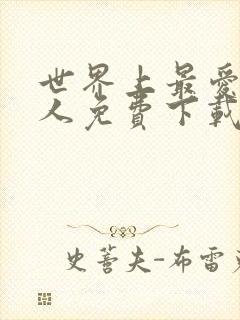 世界上最愛
人免費下載
史蒼夫-布雷